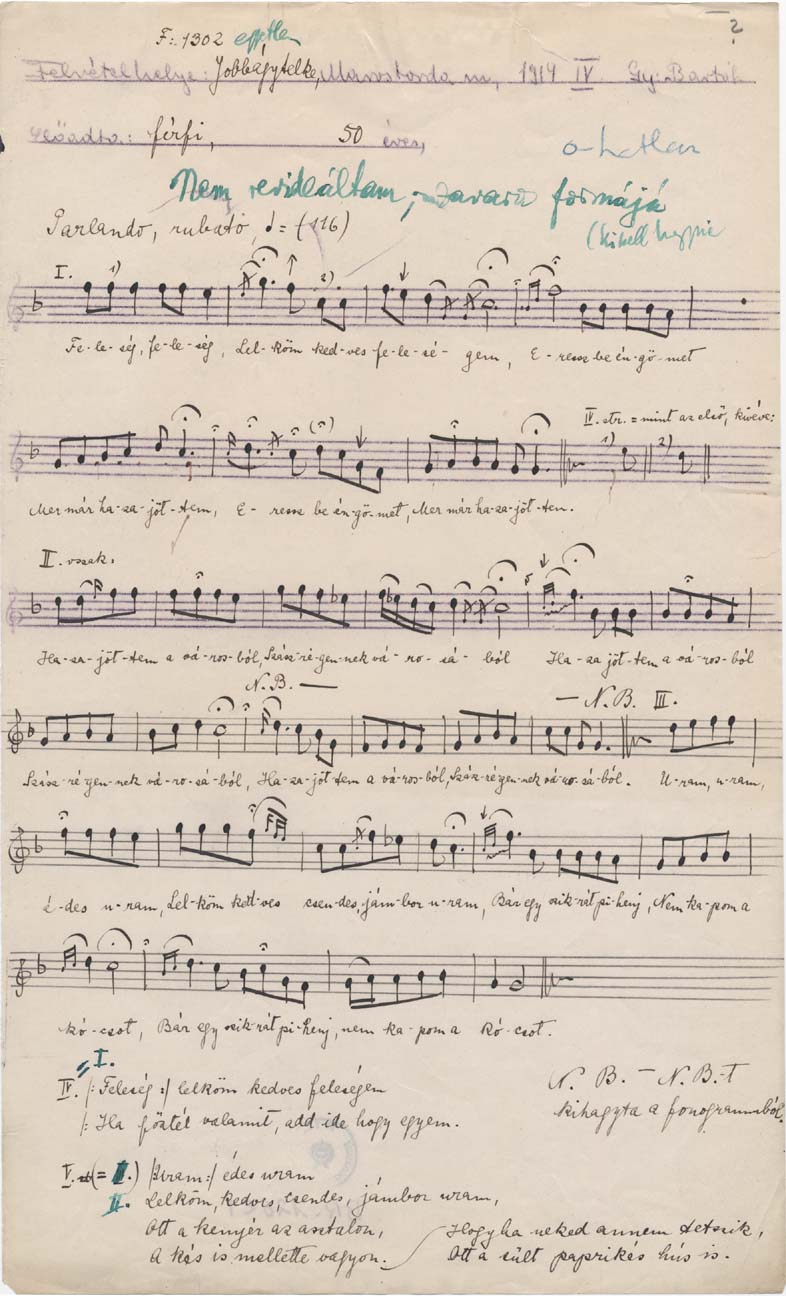 ?
F: 1302 egyetlen
Felvétel helye: Jobbágytelke, Marostorda m, 1914 IV. Gy: Bartók
Előadta: férfi, 50 éves,
Nem revideáltam, zavaró formájá
Parlando, rubato, (116)
(ki kell
I. 1) 2)
Fe-le-ség, fe-le-ség, Lel-köm ked-ves fe-le-sé-gem, E-ressz be én-gö-met
IV. str. = mint az első, kivéve:
(⌢) 1) 2)
Mer már ha-za-jöt-tem, E-ressz be én-gö-met, Mer már ha-za-jöt-tem.
II. vssak:
Ha-za-jöt-tem a vá-ros-ból, Szász-ré-gen-nek vá-ro-sá-ból Ha-za jöt-tem a vá-ros-ból
N.B. — — N.B. III.
Szász-ré-gen-nek vá-ro-sá-ból, Ha-za-jöt-tem a vá-ros-ból, Szász-ré-gen-nek vá-ro-sá-ból. U-ram, u-ram,
é-des u-ram, Lel-köm ked-ves csen-des, jám-bor u-ram, Bár egy csik-rát pi-henj, Nem ka-pom a
kó-csot, Bár egy csik-rát pi-henj, nem ka-pom a kó-csot.
I.
IV. |: Feleség :| lelköm kedves feleségem
|: Ha főztél valamit, add ide hogy egyem.
N. B. — N. B.-t
kihagyta a fonogrammból.
V. (= III.) |: Uram :| édes uram
II. Lelköm, kedves, csendes, jámbor uram,
Ott a kenyér az asztalon,
A kés is mellette vagyon.
Hogyha neked annem tetszik,
Ott a sült paprikás hús is.